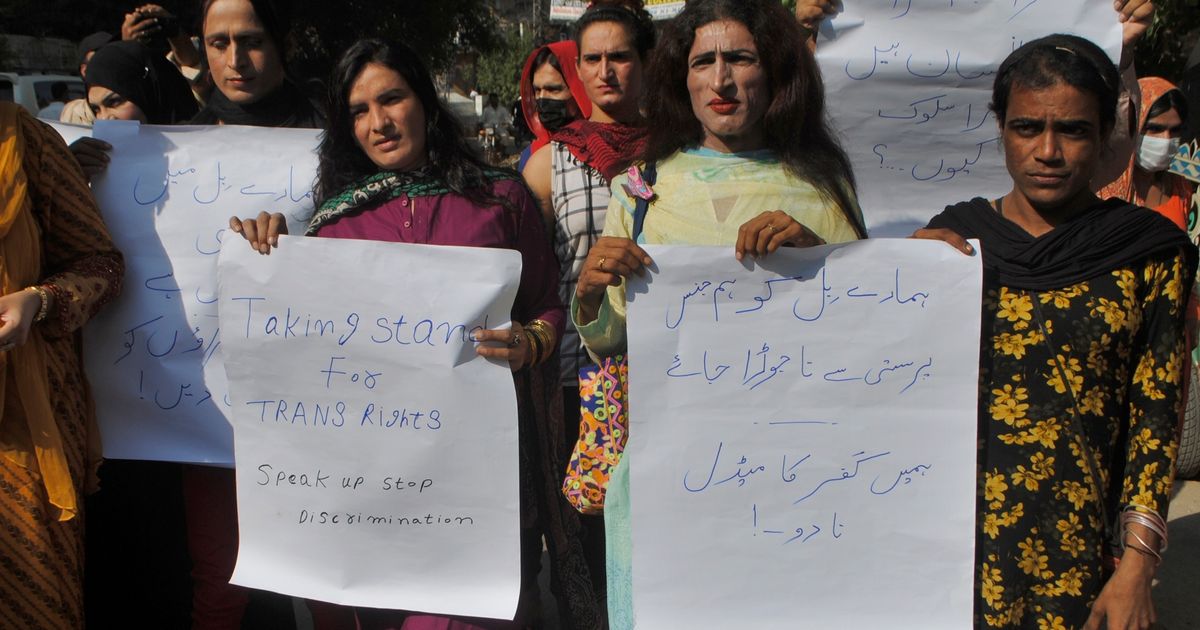 ہمارے بل میں
ی
ہے
کو
دیں!
Taking stand
For
TRANS Rights
Speak up stop
Discrimination
ہمارے بل کو ہم جنس
پرستی سے نا جوڑا جائے
ہمیں کفر کا میڈل
نا دو۔!
انسان ہیں
سلوک
کیوں ...؟